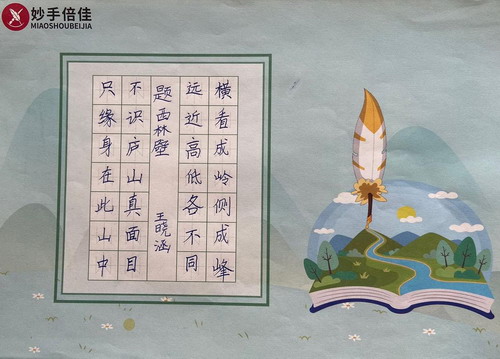 妙手倍佳
MIAOSHOUBEIJIA
横看成岭侧成峰
远近高低各不同
题西林壁 王晓涵
不识庐山真面目
只缘身在此山中